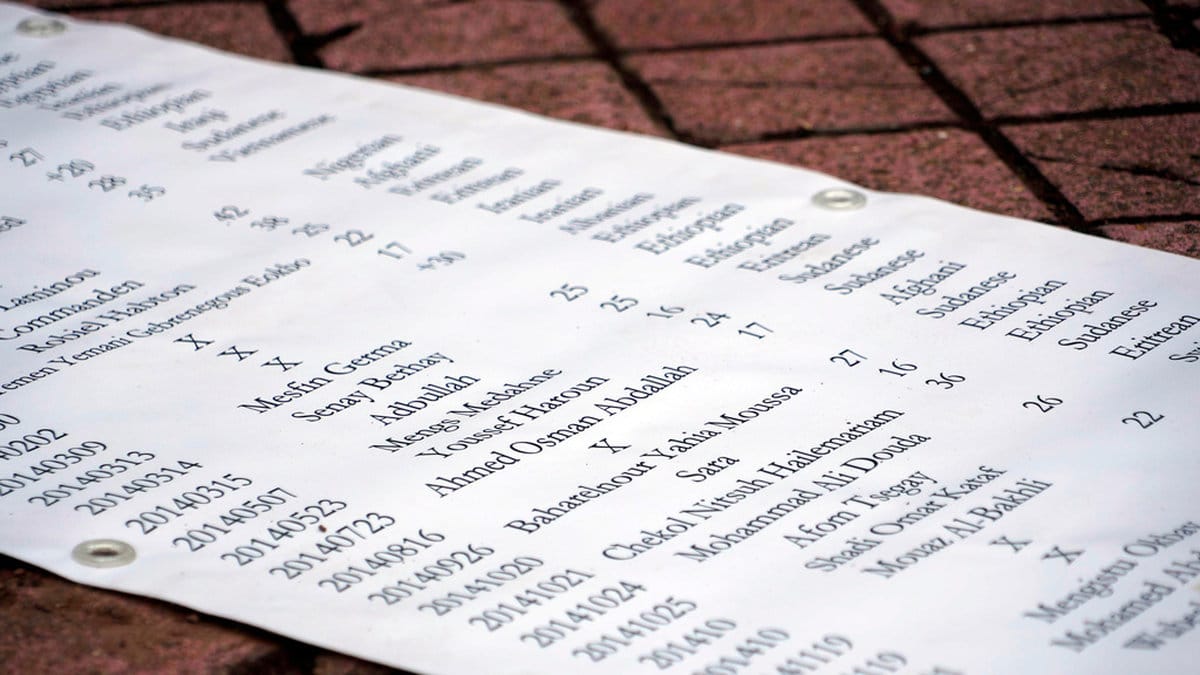 0202
20140309
20140313
20140314
20140315
20140507
20140523
20140723
20140816
20140926
20141020
20141021
20141024
20141025
201410
201410
Laminou
Commanden
Robiel Habton
Yemani Gebrenegous Eoldo
X
X
X
Mesfin Germa
Senay Berhay
Adbullah
Mengs Medahne
Youssef Haroun
Ahmed Osman Abdallah
X
Baharelnour Yahia Moussa
Sara
Chekol Nitsuh Hailemariam
Mohammad Ali Douda
Afom Tsegay
Shadi Omar Kataf
Mouaz Al-Bakhli
X
X
Mengistu
Mohamed
27
+20
28
35
42
38
25
22
17
+30
25
25
16
24
17
27
16
36
26
22
Ethiopian
Ethiopian
Iraqi
Sudanese
Vietnamese
Nigerian
Afghani
Eritrean
Eritrean
Iranian
Iranian
Albanian
Ethiopian
Ethiopian
Ethiopian
Eritrean
Sudanese
Sudanese
Afghani
Sudanese
Ethiopian
Ethiopian
Sudanese
Eritrean